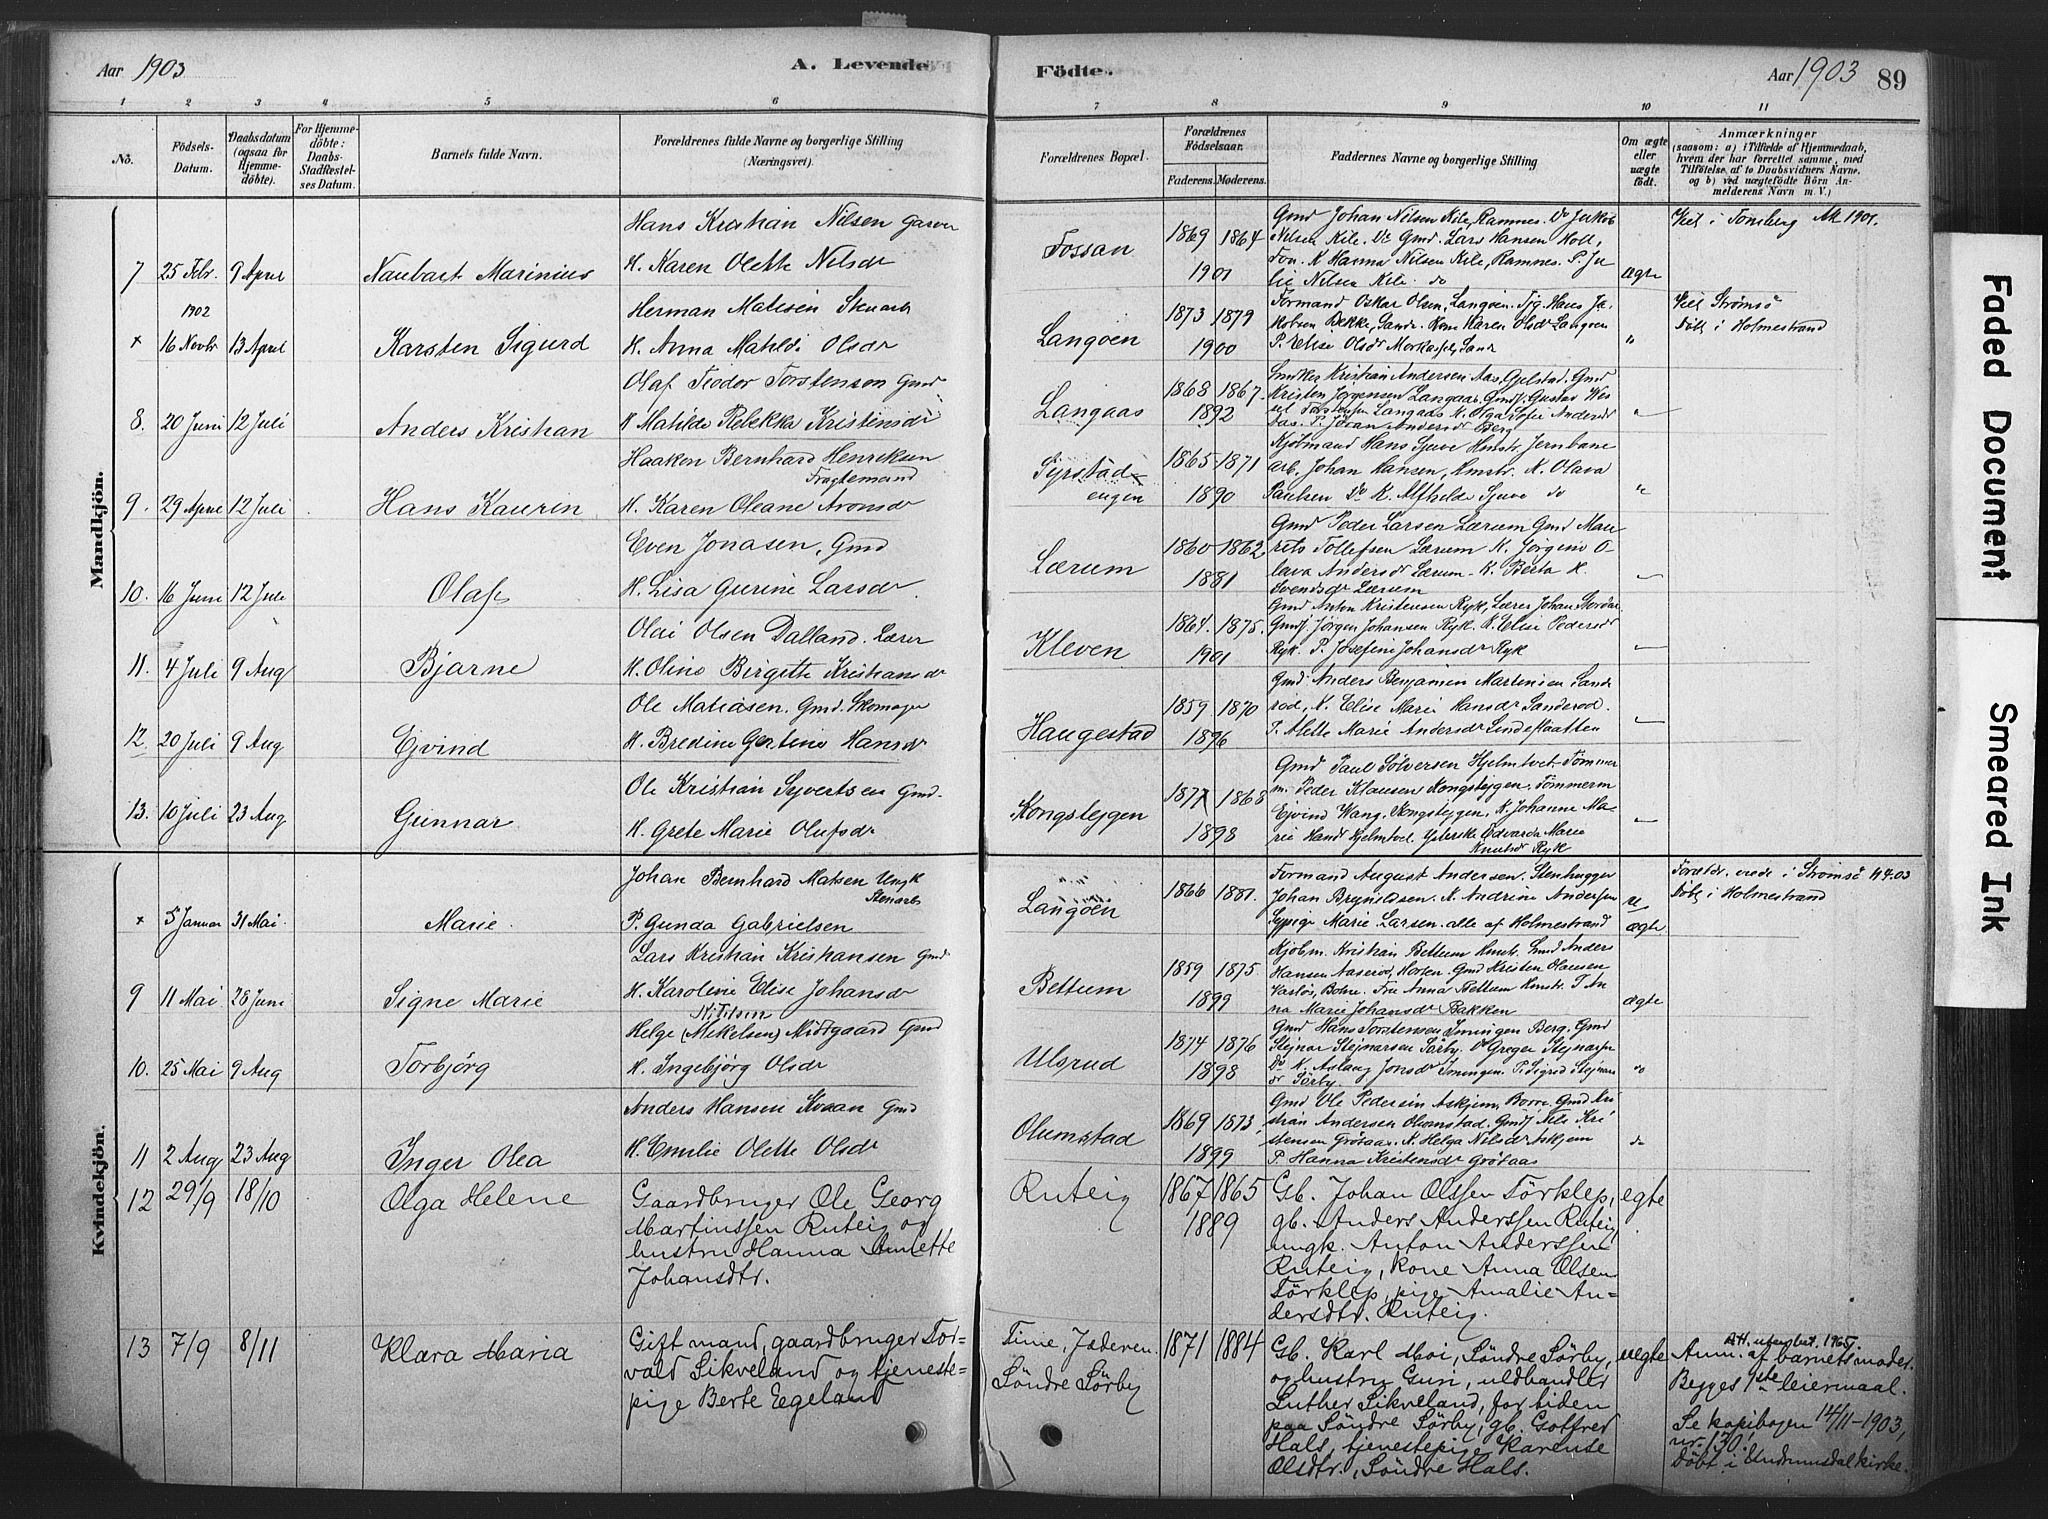 Aar 1903
A. Levende
Födte.
Aar 1903 89
1 2 3 4 5 6 7 8 9 10 11
No.
Födsels-
Datum.
Daabsdatum
(ogsaa for
Hjemme-
döbte).
For Hjemme-
döbte:
Daabs-
Stadfæstel-
ses Datum.
Barnets fulde Navn.
Forældrenes fulde Navne og borgerlige Stilling
(Næringsvei).
Forældrenes Bopæl.
Forældrenes
Födselsaar.
Faderens. Moderens.
Faddernes Navne og borgerlige Stilling
Om ægte
eller
uægte
födt.
Anmærkninger
(saasom: a) i Tilfælde af Hjemmedaab,
hvem der har forrettet samme, med
Tilföielse af to Daabsvidners Navne,
og b) ved uægtefödte Börn An-
melderens Navn m. V.)
Mandkjön.
7 25 Febr 9 April
Hans Kristian Nilsen
H. Karen Olette Nilsdr
Fossan
1869 1864
1901
Gmd Johan Nilsen Kile, Ramnes. Do Jakob
Nilsen Kile. Do Gmd. Lars Hansen Holt,
Ton. K Hanna Nilsen Kile, Ramnes. P. Ju
lie Nilsen Kile. do
ægte
Viet i Tonsberg 1901.
1902
+ 16 Novbr 13 April
Karsten Sigurd
Herman Matisen Stenarb
H. Anna Matilde Olsdr
Langöen
1873 1879
1900
Formand Oskar Olsen, Langöen. Tjg. Hans Ja
kobsen Bekke, Sande. Kone Karen Olsdr Langöen
P. Elise Olsdr Sande
"
Viet Strömsö
Döbt i Holmestrand
8. 20 Juni 12 Juli
Anders Kristian
Olaf Teodor Torstensen Gmd
H. Matilde Rebekka Kristensdr
Langaas
1868 1867.
1892
Kristian Andersen Aas, Gjelstad. Gmd
Kristen Jörgensen Langaas. Gustav
Torstensen Langaas K. Olga Sofie Andersdr
Aas. P. Andersdr Berg
9. 29 April 12 Juli
Hans Kaurin
Haakon Bernhard Henriksen
Fragtemand
H. Karen Oleane Aronsdr
Syrstad-
engen
1865 1871
1890
Kjöbmand Hans Sjuve Hmstr. Jernbane
arb. Johan Hansen, Hmstr. K. Olava
Paulsen Do K. Alfhilde Sjuve do
"
10. 16 Juni 12 Juli
Olaf
Even Jonasen, Gmd
H. Lisa Gurine Larsdr
Lærum
1860 1862
1881
Gmd Peder Larsen Lærum Gmd Mau
rits Tollefsen Lærum K. Jörgine O
lava Andersdr Lærum. K. Berta K.
Svendsdr Lærum
11. 4 Juli 9 Aug
Bjarne
Olai Olsen Dalland. Lærer
H. Oline Birgitte Kristiansdr
Kleven
1864. 1875.
1901
Gmd Anton Kristensen Ryk, Lærer Johan
Jörgen Johansen Ryk. K. Elise Pedersdr
Ryk. P. Josefine Johansdr Ryk
12. 20 Juli 9 Aug
Ejvind
Ole Matiasen. Gmd. Skomager
H. Bredine Gertine Hansdr
Haugestad
1859 1870
1896
Gmd. Anders Benjamin Martinsen Sande
röd, K. Elise Marie Hansdr Sanderöd.
P. Alette Marie Andersdr Lindeflaatten
13. 10 Juli 23 Aug
Gunnar
Ole Kristian Syvertsen Gmd
H. Grete Marie Olufsdr
Kongsteggen
1877 1868
1898
Gmd Paul Sölversen Hjelmtvet. Tömmer
m. Peder Klausen Kongsteggen. Tömmerm
Ejvind Wang, Kongsteggen, K. Johanne Ma
rie Hansdr Hjelmtvet. Edvarda Marie
Knutsdr Ryk
Kvindekjön.
+ 5 Januar 31 Mai.
Marie.
Johan Bernhard Matsen Ungk
Stenarb
P. Gunda Gabrielsen
Langöen
1866 1881.
Formand August Andersen. Stenhugger
Johan Brynildsen. K. Andrine Andersen
Sypige Marie Larsen. alle af Holmestrand
u
ægte
Foreldr. viede i Strömsö
Döbt i Holmestrand
9 11 Mai 28 Juni
Signe Marie
Lars Kristian Kristiansen Gmd
H. Karoline Elise Johansdr
Bettum
1859 1875.
1899
Kjöbm. Kristian Bettum Hmstr. Gmd Anders
Hansen Aaseröd, Horten. Gmd Kristen Hansen
Varlös, Botne. Fru Anna Bettum Hmstr. P. An
na Marie Johansdr Bakken
ægte
10. 25 Mai 9 Aug
Torbjörg
Helge (Mikelsen) Midtgaard Gmd
H. Ingebjørg Olsdr
Ulsrud
1874 1876
1898
Gmd Hans Torstensen Imingen Berg. Gmd
Stejnar Stejnarsen Sörby. Do Greger Stejnarsen
Do K. Aslaug Jonsdr Imingen. P. Sigrid Stejnars
dr Sörby.
do
11 2 Aug 23 Aug
Inger Olea
Anders Hansen Gmd
H. Emilie Olette Olsdr
Olumstad
1869 1873
1899
Gmd Ole Pedersen Askjem, Borre. Gmd Kri
stian Andersen Olumstad. Kri
stensen Grötaas. K. Helga Nilsdr Askjem
P. Hanna Kristensdr Grötaas
do
12 29/9 18/10
Olga Helene
Gaardbruger Ole Georg
Martinssen Ruteig og
hustru Hanna Anette
Johansdtr.
Ruteig
1867 1865
1889
Gb. Johan Olssen Törklep,
gb. Anders Anderssen Ruteig,
ungk. Anton Anderssen
Ruteig, kone Anna Olsen
Törklep, pige Amalie An-
dersdtr. Ruteig.
egte
13 7/9 8/11
Klara Maria
Gift mand, gaardbruger Tor-
vald Sikveland og tjeneste-
pige Berte Egeland
Time, Jæderen.
Söndre Sörby
1871 1884
Gb. Karl Moi, Söndre Sörby,
og hustru Guri, uldhandler
Luther Sikveland, for tiden
paa Söndre Sörby, gb. Gotfred
Hals, tjenestepige Karense
Olsdtr., Söndre Hals.
uegte
Att. utenbet. 1965.
Anm. af barnets moder.
Begges 1ste leiermaal.
Se kopibogen 14/11-1903,
nr. 130.
Döbt i Undrumsdal kirke.
Faded Document
Smeared Ink